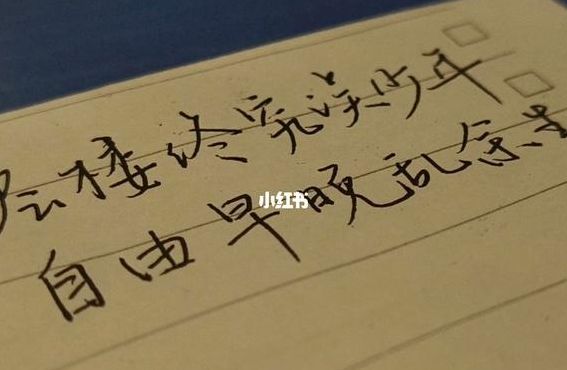 阁楼终究误少年
自由早晚乱余生
小红书